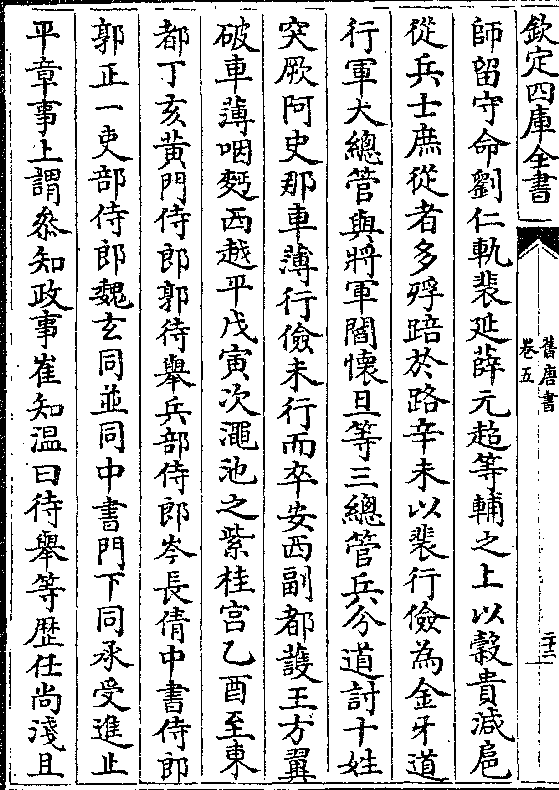 欽定四庫全書
舊唐書
卷五
二十二
師留守命劉仁軌裴延薛元超等輔之上以穀貴減扈
從兵士庶從者多殍踣於路辛未以裴行儉為金牙道
行軍大總管與將軍閻懐旦等三總管兵分道討十姓
突厥阿史那車薄行儉未行而卒安西副都䕶王方翼
破車薄咽麪西越平戊寅次澠池之紫桂宫乙酉至東
都丁亥黄門侍郎郭待舉兵部侍郎岑長倩中書侍郎
郭正一吏部侍郎魏玄同並同中書門下同承受進止
平章事上謂叅知政事崔知温曰待舉等歴任尚淺且